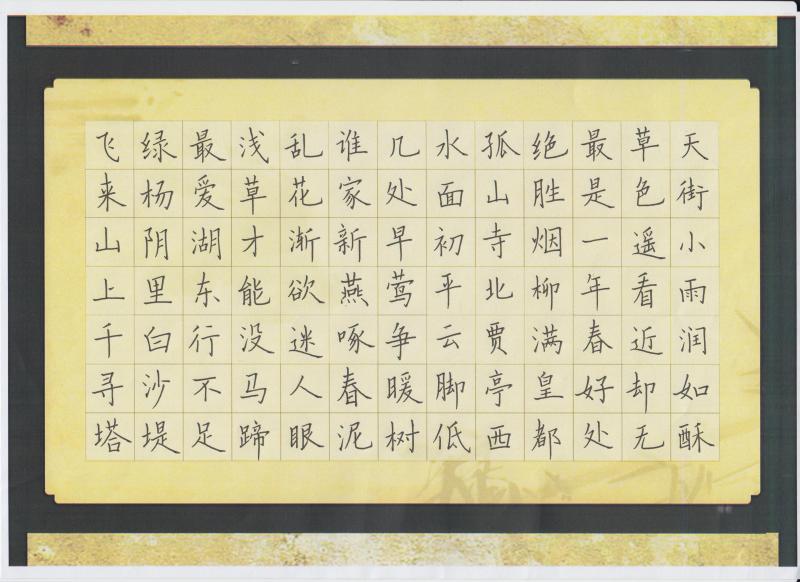 天街小雨润如酥
草色遥看近却无
最是一年春好处
绝胜烟柳满皇都
孤山寺北贾亭西
水面初平云脚低
几处早莺争暖树
谁家新燕啄春泥
乱花渐欲迷人眼
浅草才能没马蹄
最爱湖东行不足
绿杨阴里白沙堤
飞来山上千寻塔